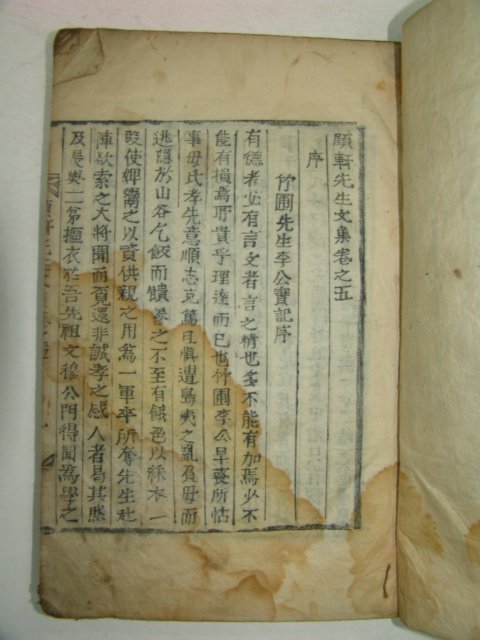 頤軒先生文集卷之五
序
竹圃先生李公實記序
有德者必有言文者言之精也多不能有加焉少不
能有損焉所貴乎理達而已也竹圃李公早喪所怙
事母氏孝先意順志克篤且愼遭島夷之亂負母而
逃隱於山谷乞飯而饋養之不至有餓色以綵木一
段使婢鬻之以資供親之用爲一軍卒所奪先生赴
陣欲索之大將聞而賫還非誠孝之感人者曷其然
及長與二弟摳衣於吾先祖文穆公門得聞爲學之